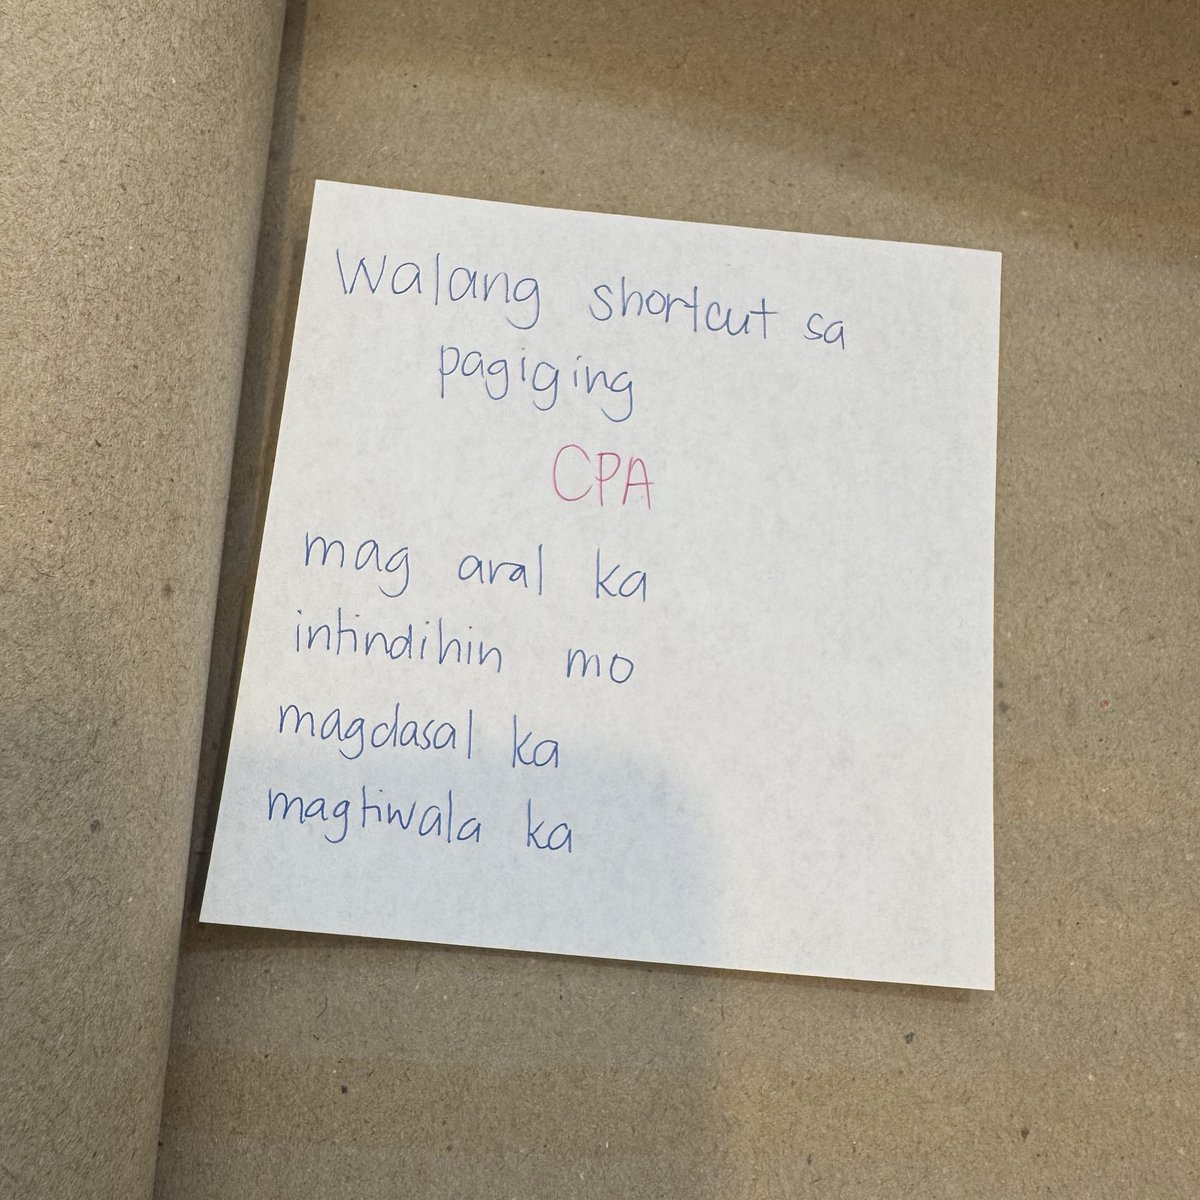 Walang shortcut sa
pagiging
CPA
mag aral ka
intindihin mo
magdasal ka
magtiwala ka